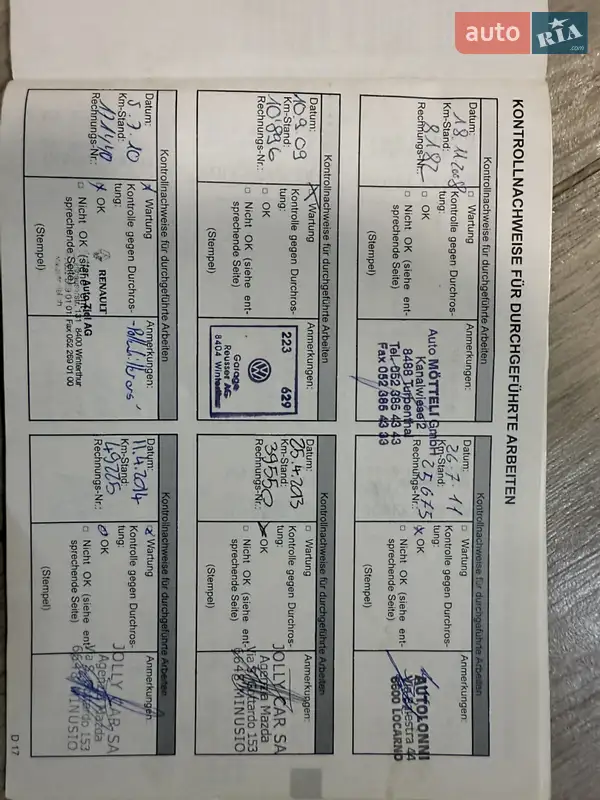 auto RIA .com
KONTROLLNACHWEISE FÜR DURCHGEFÜHRTE ARBEITEN
Kontrollnachweise für durchgeführte Arbeiten
Datum:
18.11.2008
Km-Stand:
8187
Rechnungs-Nr.:
□ Wartung
Kontrolle gegen Durchrostung:
□ OK
□ Nicht OK (siehe entsprechende Seite)
(Stempel)
Anmerkungen:
Auto MÖTTELI GmbH
Kanalwiese 2
8488 Turbenthal
Tel. 052 385 43 43
Fax 052 385 43 33
Kontrollnachweise für durchgeführte Arbeiten
Datum:
26.7.11
Km-Stand:
25675
Rechnungs-Nr.:
□ Wartung
Kontrolle gegen Durchrostung:
OK
□ Nicht OK (siehe entsprechende Seite)
(Stempel)
Anmerkungen:
AUTOLONNI
6600 LOCARNO
Kontrollnachweise für durchgeführte Arbeiten
Datum:
10.9.09
Km-Stand:
10'896
Rechnungs-Nr.:
Wartung
Kontrolle gegen Durchrostung:
□ OK
□ Nicht OK (siehe entsprechende Seite)
(Stempel)
Anmerkungen:
223 629
Garage
Reusser AG
8404 Winterthur
Kontrollnachweise für durchgeführte Arbeiten
Datum:
25.4.2013
Km-Stand:
39550
Rechnungs-Nr.:
□ Wartung
Kontrolle gegen Durchrostung:
OK
□ Nicht OK (siehe entsprechende Seite)
(Stempel)
Anmerkungen:
JOLLY CAR SA
Agenzia Mazda
153
6648 MINUSIO
Kontrollnachweise für durchgeführte Arbeiten
Datum:
5.7.10
Km-Stand:
Rechnungs-Nr.:
Wartung
Kontrolle gegen Durchrostung:
OK
□ Nicht OK (siehe entsprechende Seite)
(Stempel)
Anmerkungen:
RENAULT
8400 Winterthur
Fax 052 269 01 00
Kontrollnachweise für durchgeführte Arbeiten
Datum:
11.4.2014
Km-Stand:
Rechnungs-Nr.:
Wartung
Kontrolle gegen Durchrostung:
OK
□ Nicht OK (siehe entsprechende Seite)
(Stempel)
Anmerkungen:
JOLLY CAR SA
Agenzia Mazda
153
6648 MINUSIO
D 17